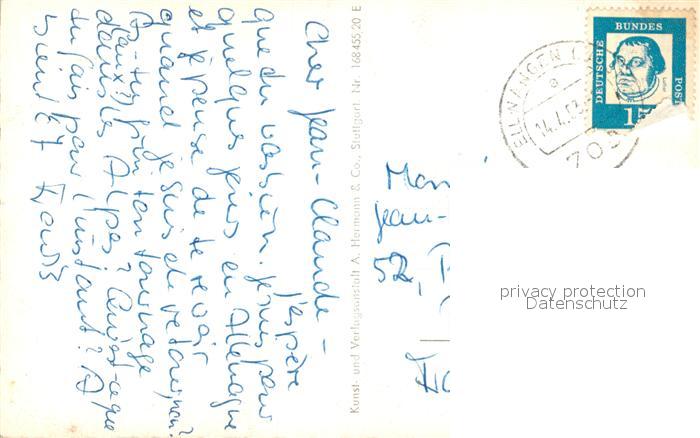 Cher Jean-Claude -
J'espère
que tu vas bien. Je suis pour
quelques jours en Allemagne
et je pense de te revoir
quand je suis de retour
As-tu fini ton tournage
dans les Alpes? Qu'est-ce que
tu fais pour l'instant? A
bientôt
Kunst- und Verlagsanstalt A. Hermann & Co., Stuttgart, Nr. 168 455 20 E
DEUTSCHE BUNDES POST
Luther
ELLWANGEN
a
14.4.62
Mon
Jean-
52,
privacy protection
Datenschutz